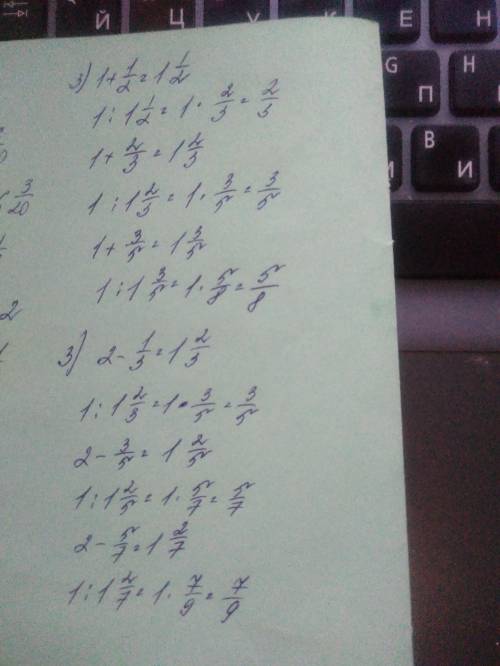 Й Ц У К Е Н
G П
В И
3) 1 + 1/2 = 1 1/2
1 : 1 1/2 = 1 · 2/3 = 2/3
1 + 2/3 = 1 2/3
1 : 1 2/3 = 1 · 3/5 = 3/5
1 + 3/5 = 1 3/5
1 : 1 3/5 = 1 · 5/8 = 5/8
3) 2 - 1/3 = 1 2/3
1 : 1 2/3 = 1 · 3/5 = 3/5
2 - 3/5 = 1 2/5
1 : 1 2/5 = 1 · 5/7 = 5/7
2 - 5/7 = 1 2/7
1 : 1 2/7 = 1 · 7/9 = 7/9
3/20
2